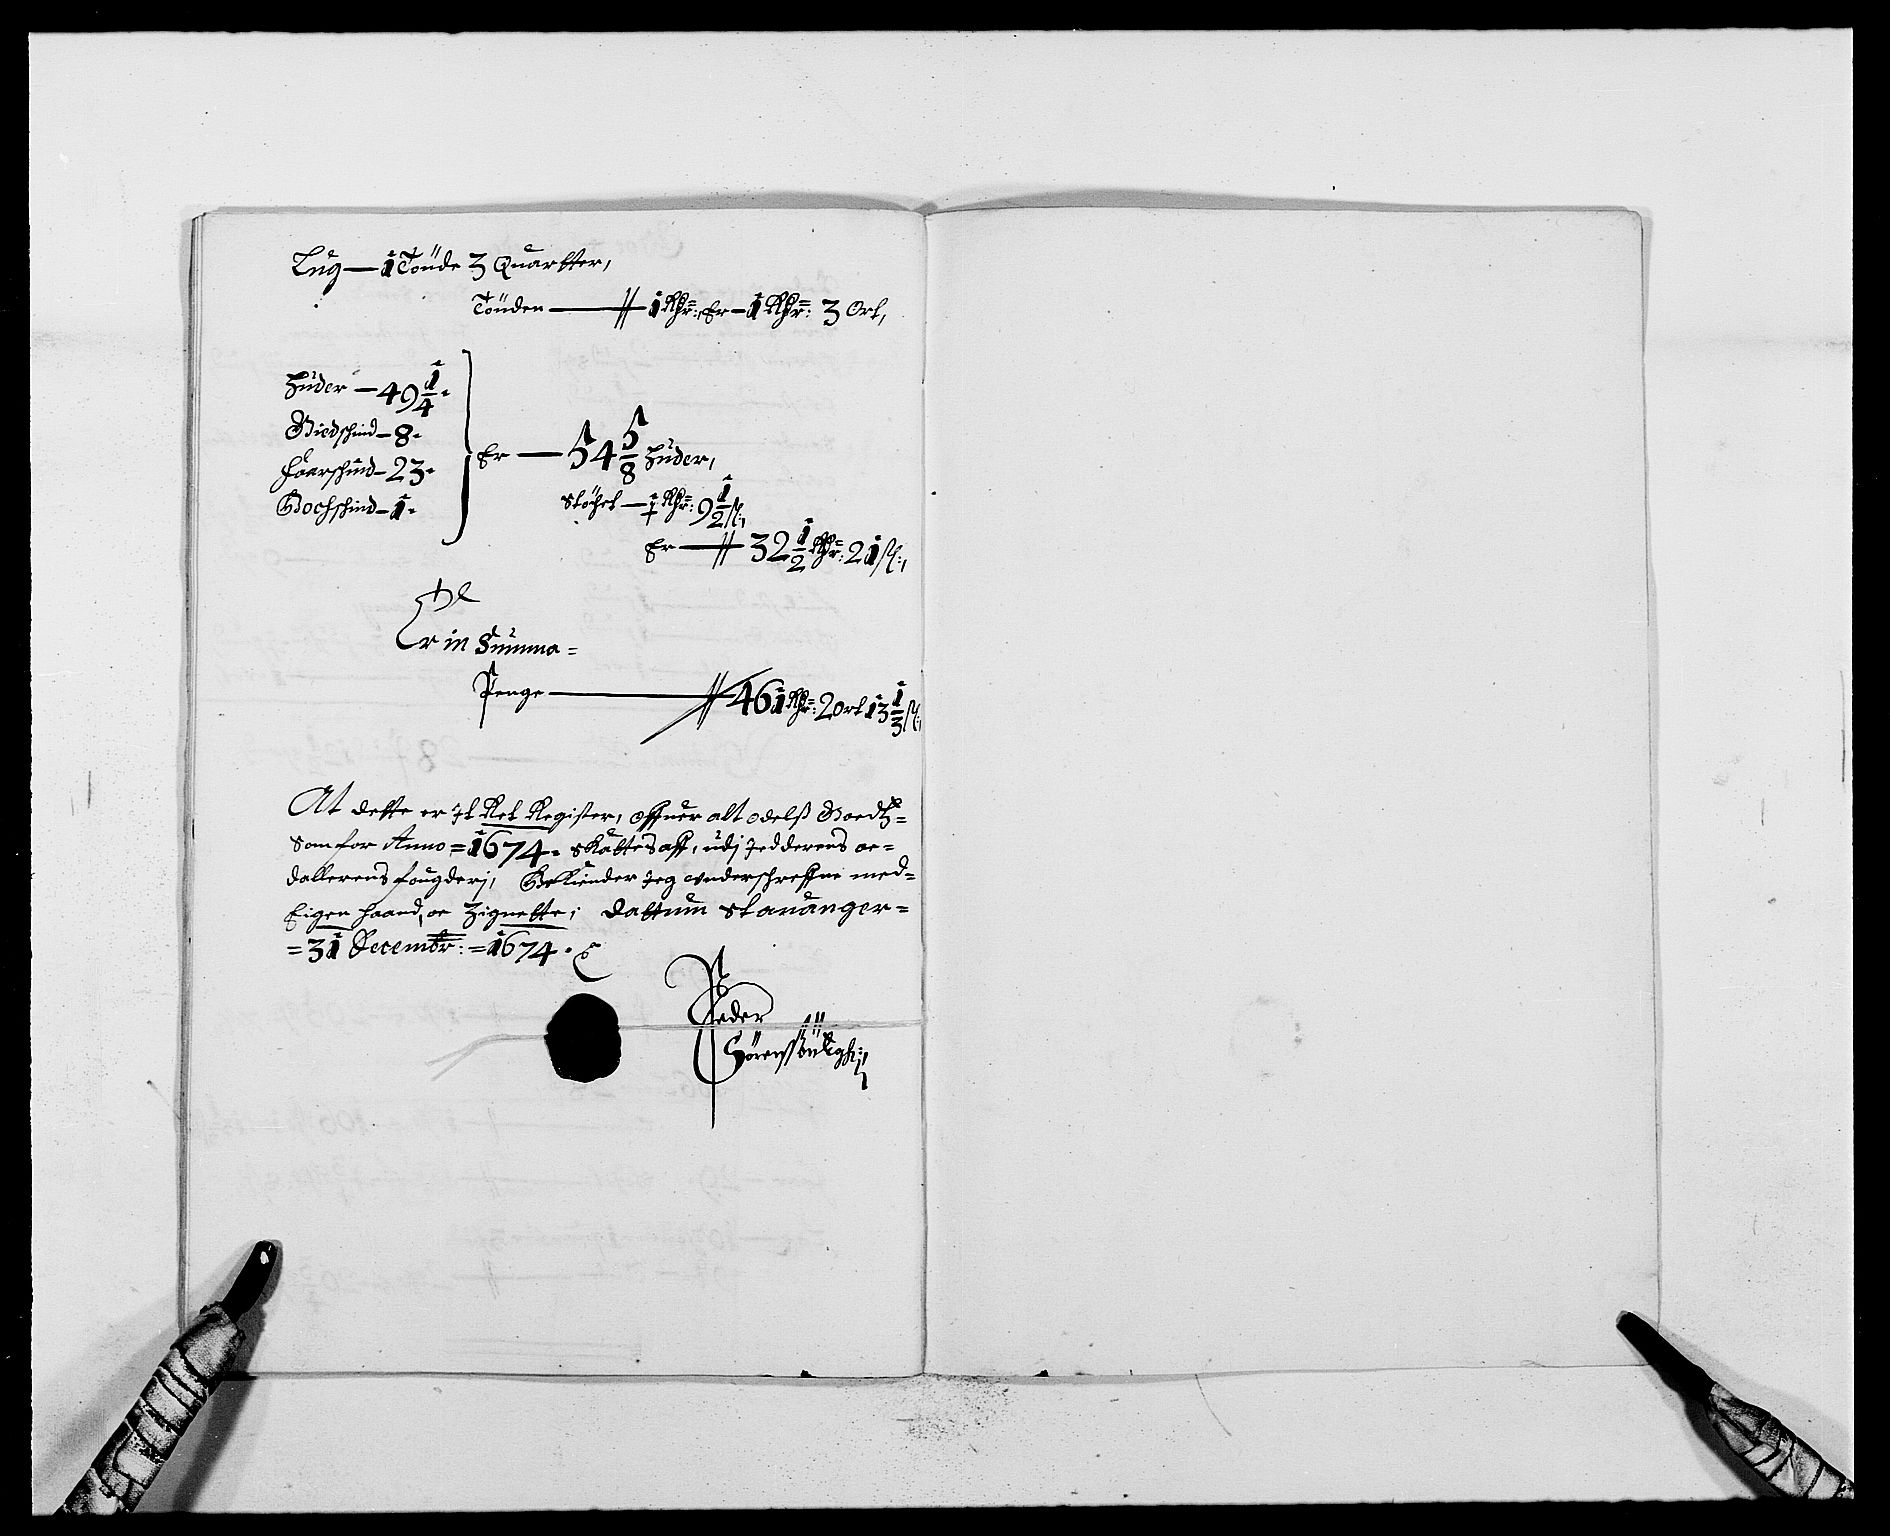 Bÿg — 1 Tønde 3 Quartter,
Tønden — 1 Rdr: Er — 1 Rdr: 3 Ort,
Huder — 49 1/4
Giedschind — 8
Faarschind — 23
Bochschind — 1
Er — 54 5/8 Huder,
støchet — Rdr: 9 1/2 sl:,
Er — 32 1/2 Rdr: 21 sl:,
Er in Summa =
Penge — 461 Rdr: 2 ort 13 1/3 sl:,
At dette er It Ret Register, offuer alt odelss Goedtz =
som for Anno = 1674 skattes aff, udj Jedderens oc =
dallerens fougderj, Bekiender Jeg underschreffne med =
Eigen haand, oc Zignette; dattum stauanger =
= 31 Decembr: = 1674
Peder
Sørenssøn